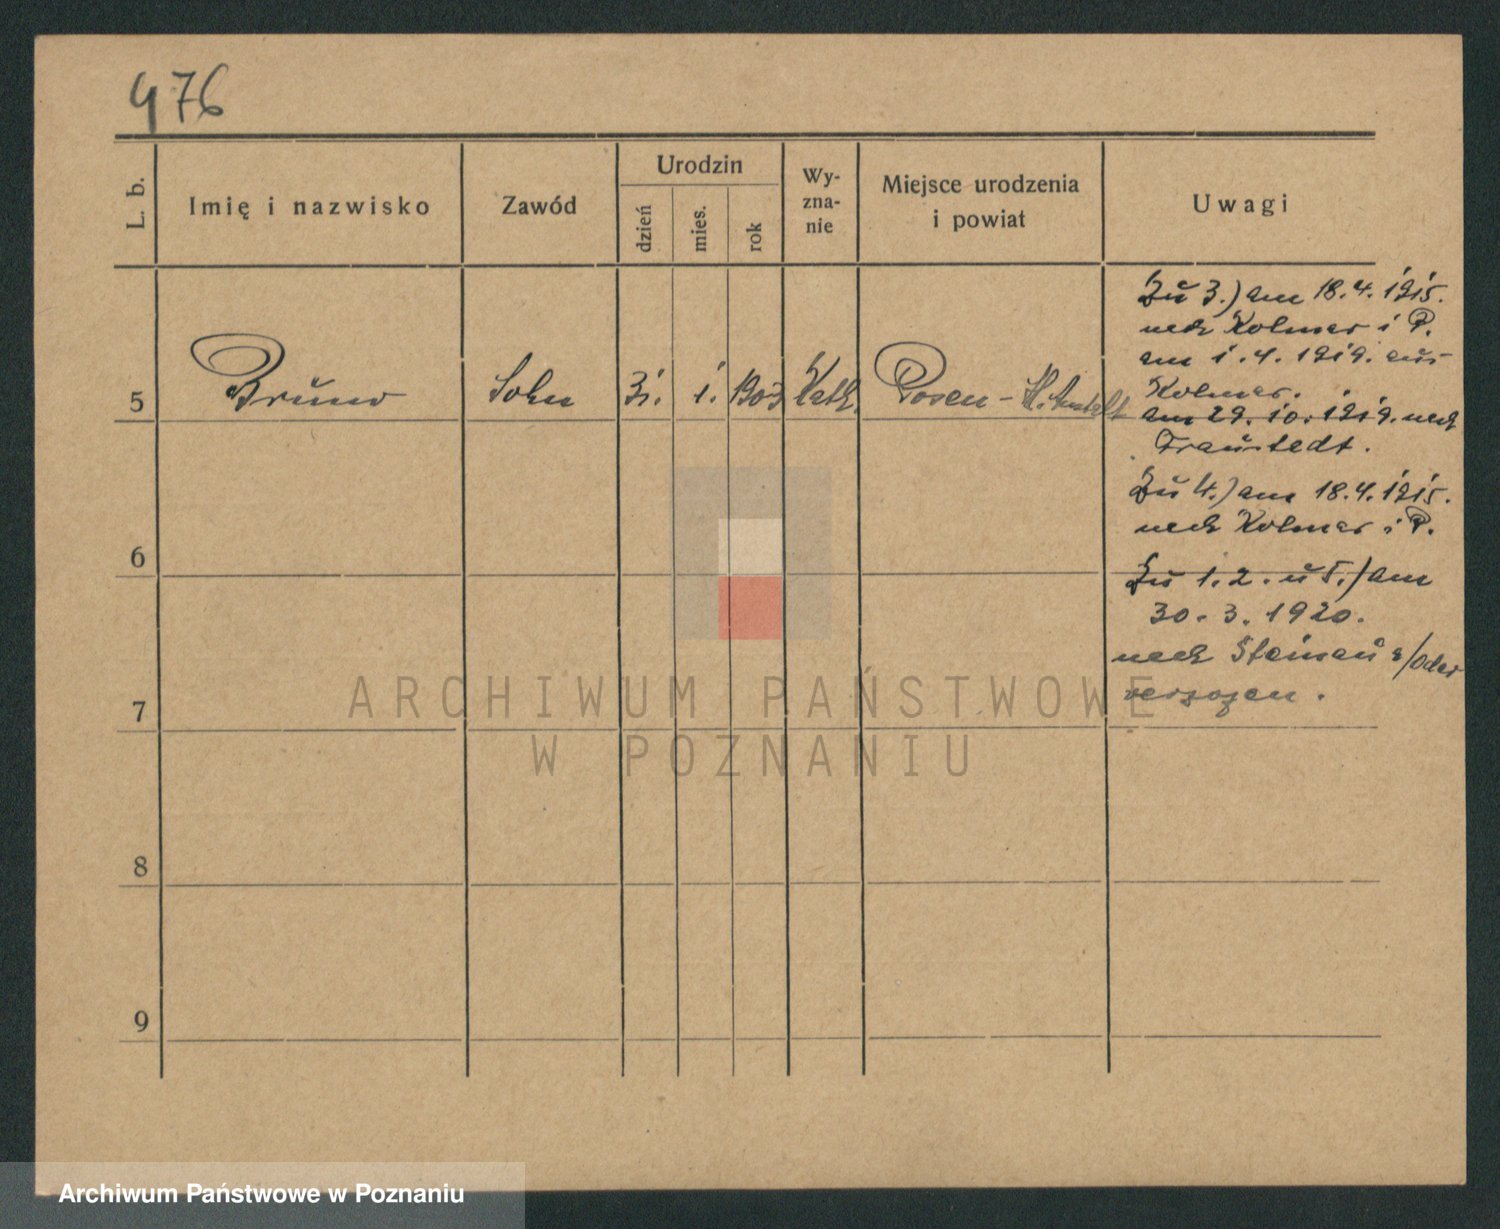 976
L. b.
Imię i nazwisko
Zawód
Urodzin
dzień
mies.
rok
Wy-
zna-
nie
Miejsce urodzenia
i powiat
Uwagi
5 Bruno Sohn 31. 1. 1903 Kath. Posen -
6
7
8
9
Zu 3.) am 18.4.1915.
nach Kolmar i P.
am 1.4.1919. aus
Kolmar.
am 29.10.1919. nach
Fraustadt.
Zu 4.) am 18.4.1915.
nach Kolmar i P.
Zu 1. 2. u 5.) am
30.3.1920.
nach Steinau a/Oder
verzogen.
ARCHIWUM PAŃSTWOWE
W POZNANIU
Archiwum Państwowe w Poznaniu